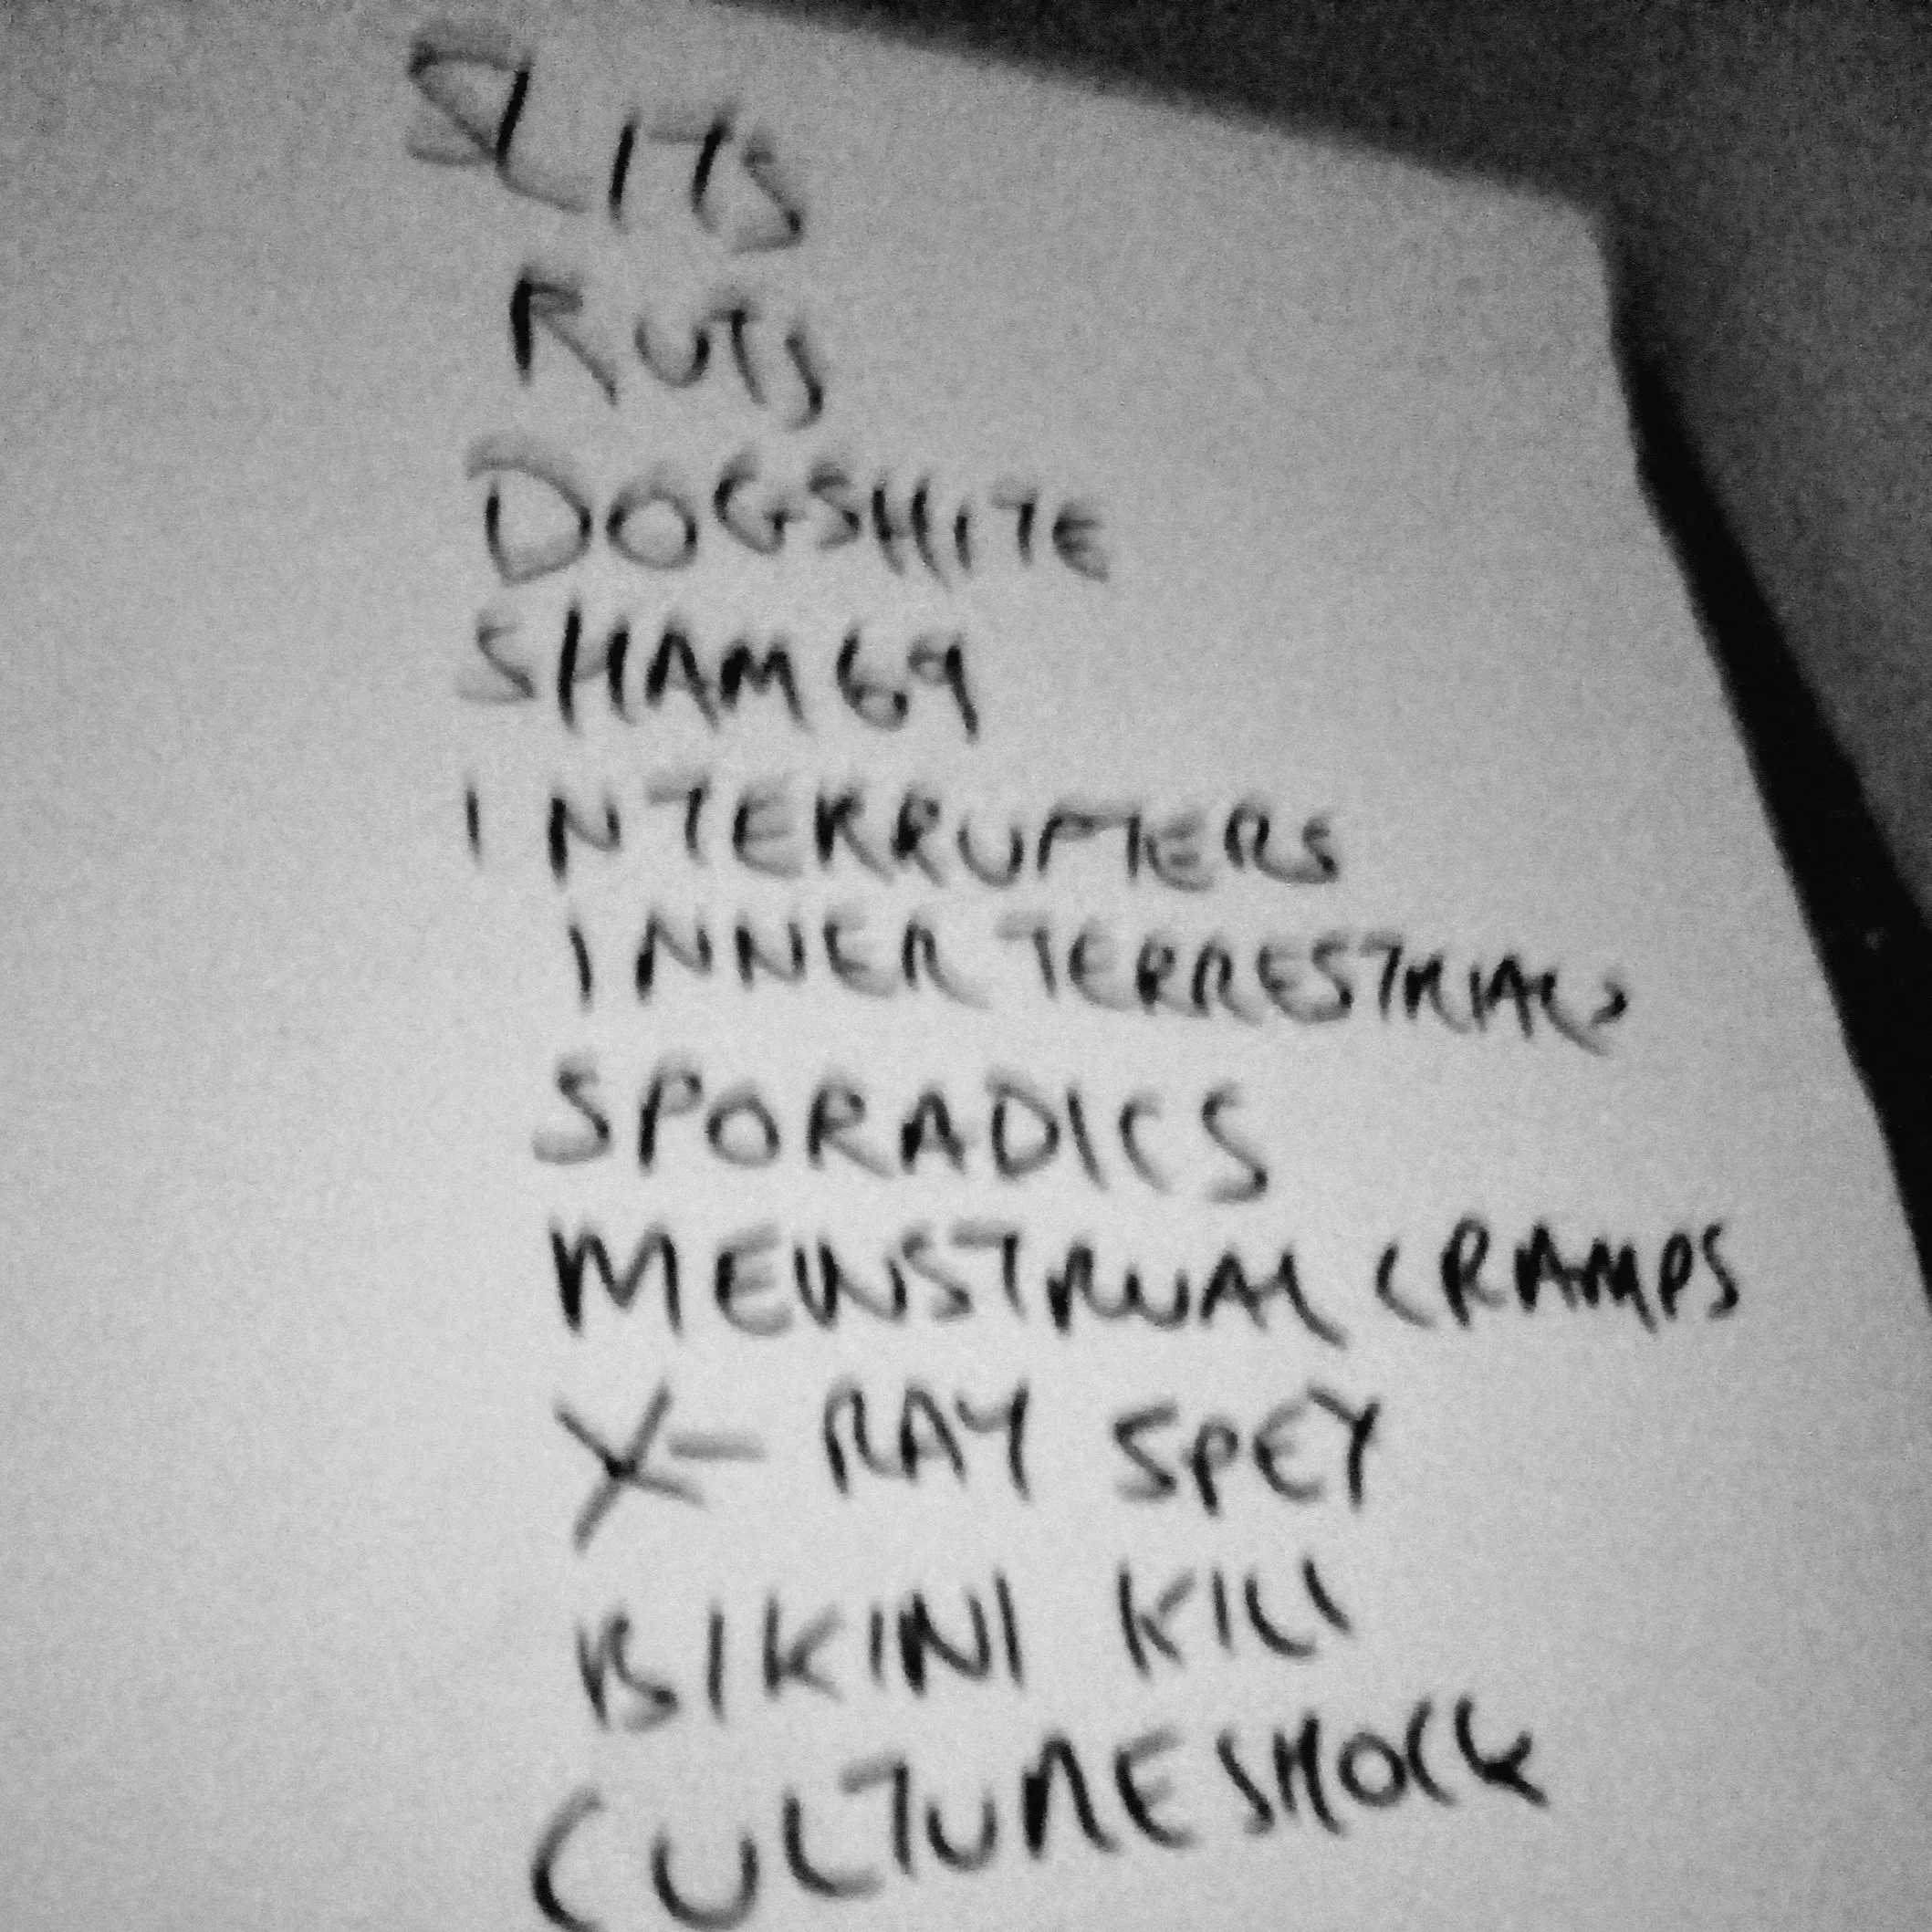 SLITS
RUTS
DOGSHITE
SHAM 69
INTERRUPTERS
INNER TERRESTRIALS
SPORADICS
MENSTRUAL CRAMPS
X-RAY SPEY
BIKINI KILL
CULTURE SHOCK